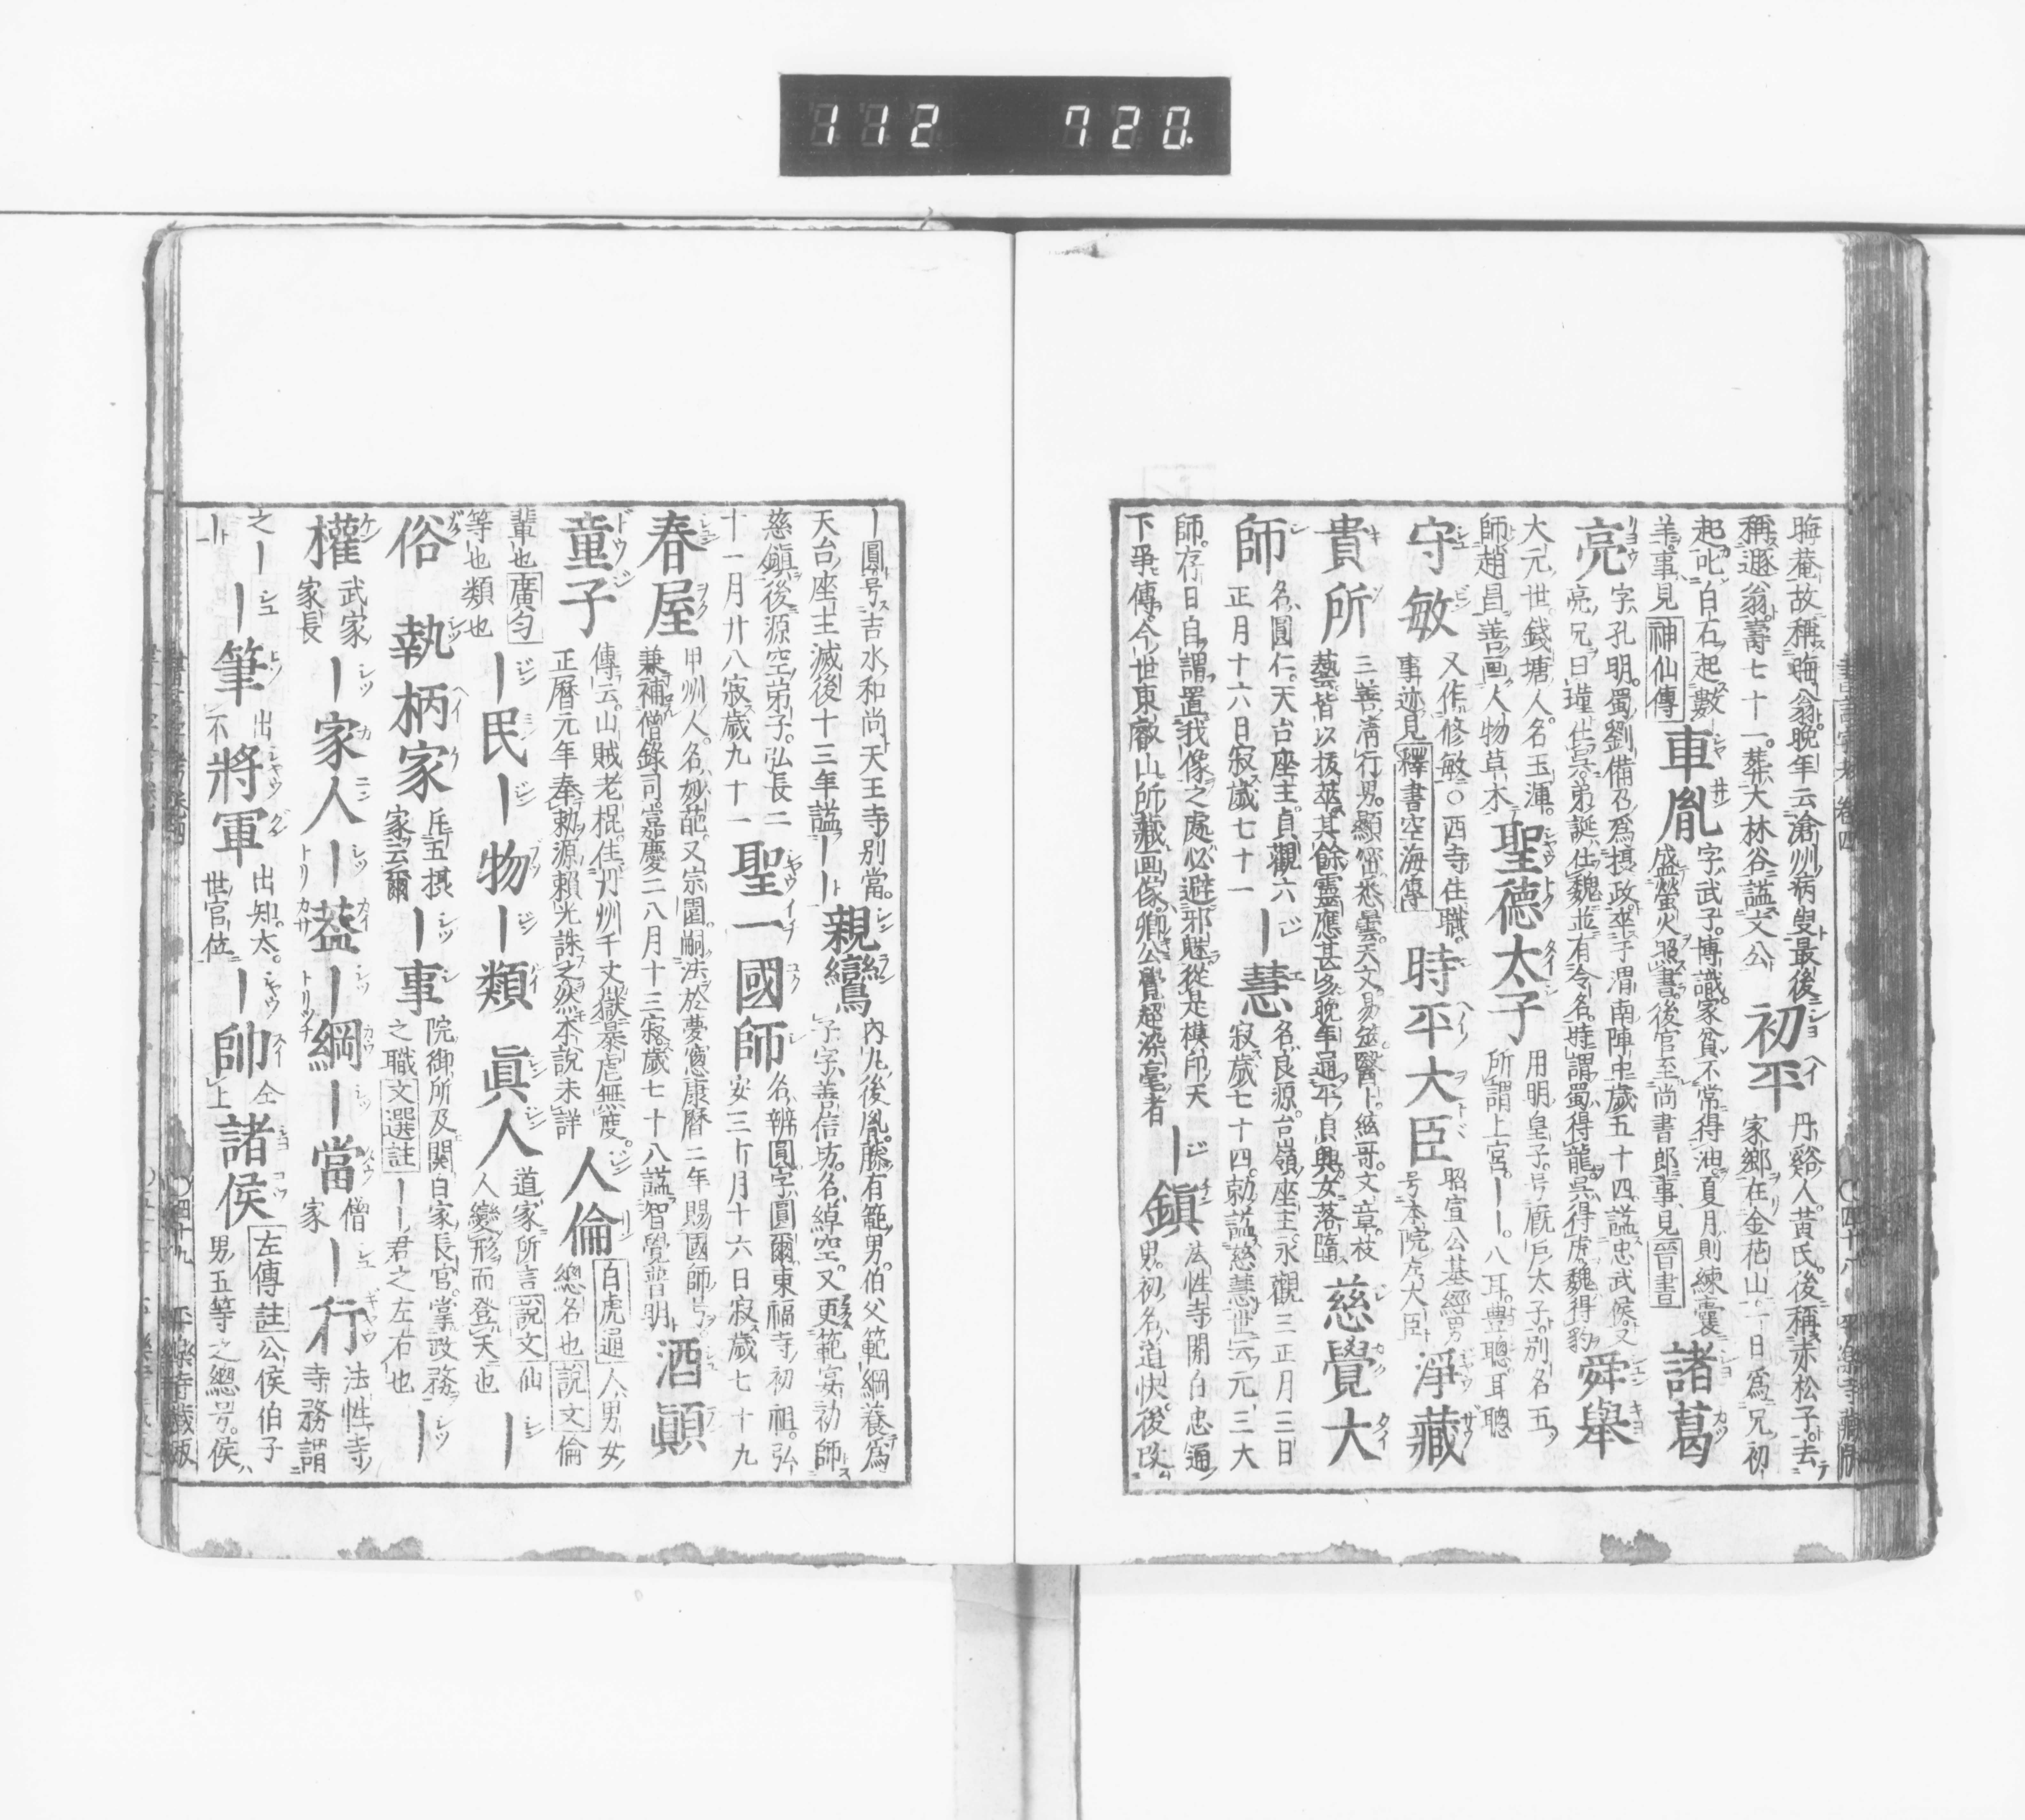 112 720
晦菴故稱晦翁晩年云滄洲病叟最後
稱遯翁壽七十一葬大林谷謚文公
初平
丹谿人黃氏後稱赤松子去
家鄉在金花山一日爲兄初
起叱白石起數
羊事見神仙傳
車胤
字武子博識家貧不常得油夏月則練囊
盛螢火照書後官至尚書郎事見晉書
諸葛
亮
字孔明蜀劉備乃爲摂政卒于渭南陣中歲五十四謚忠武侯又
亮兄曰瑾仕吳弟誕仕魏並有令名時謂蜀得龍吳得虎魏得豹
舜舉
大元世錢塘人名玉潭
師趙昌善画人物草木
聖德太子
用明皇子号厩戸太子別名五
所謂上宮ーー八耳豊聰耳聰
守敏
又作修敏〇西寺住職
事迹見釋書空海傳
時平大臣
昭宣公基經男
号本院左大臣
淨藏
貴所
三善淸行男顯密悉曇天文易筮醫卜絃哥文章
藝皆以拔萃其餘靈應甚多晩年通平貞興女落隨
慈覺大
師
名圓仁天台座主貞觀六
正月十六日寂歲七十一
ー慧
名良源台嶺座主永觀三正月三日
寂歲七十四勅謚慈慧世云元三大
師存日自謂置我像之處必避邪魅從是模印天
下爭傳今世東叡山所藏画像卿公覺超染毫者
ー鎭
法性寺關白忠通
男初名道快後改
ー圓号吉水和尚天王寺別當
天台座主滅後十三年謚ーー
親鸞
内丸後胤勝有範男伯父範綱養爲
子字善信坊名綽空又更範宴初師
慈鎭後源空弟子弘長二
十一月廿八寂歲九十一
聖一國師
名辨圓字圓爾東福寺初祖弘
安三十月十六日寂歲七十九
春屋
甲州人名妙葩又宗園嗣法於夢窻康暦二年賜國師号
兼補僧錄司嘉慶二八月十三寂歲七十八謚智覺普明
酒顚
童子
傳云山賊老棍住丹州千丈嶽暴虐無度
正曆元年奉勅源賴光誅之然本說未詳
人倫
白虎通人男女
總名也說文倫
輩也廣匀
等也類也
ー民ー物ー類
眞人
道家所言說文仙
人變形而登天也
ー
俗
執柄家
斥五摂
家云爾
ー事
院御所及関白家長官掌政務
之職文選註ーー君之左右也
ー
權
武家
家長
ー家人ー蓋ー綱ー當
僧
家
ー行
法性寺
寺務謂
之ー
ー
ー筆
出
不
將軍
出知太
世官位
ー帥
仝
上
諸侯
左傳註公侯伯子
男五等之總号侯